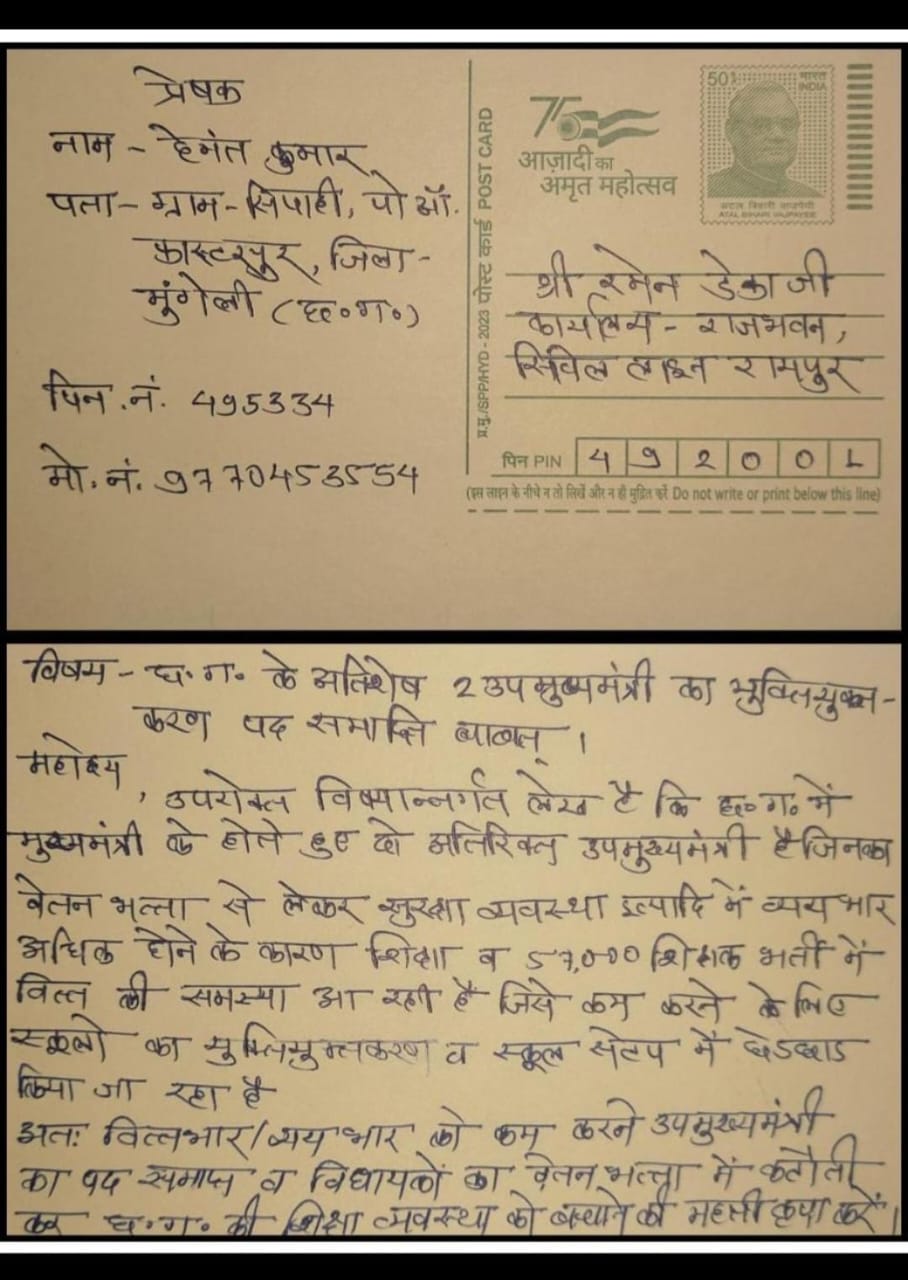 प्रेषक
नाम - हेमंत कुमार
पता - ग्राम - सिपाही, पो ऑ.
फास्टरपुर, जिला -
मुंगेली (छ०ग०)
पिन.नं. 495334
मो.नं. 9770453554
प्र.मु./SPP/HYD - 2023 पोस्ट कार्ड POST CARD
75
आज़ादी का
अमृत महोत्सव
50 भारत
INDIA
अटल बिहारी वाजपेयी
ATAL BIHARI VAJPAYEE
श्री रमेन डेका जी
कार्यालय - राजभवन,
सिविल लाइन रायपुर
पिन PIN 492001
(इस लाइन के नीचे न तो लिखें और न ही मुद्रित करें Do not write or print below this line)
विषय - छ.ग. के अतिशेष 2 उपमुख्यमंत्री का युक्तियुक्त-
करण पद समाप्ति बाबत् ।
महोदय
, उपरोक्त विषयान्तर्गत लेख है कि छ०ग० में
मुख्यमंत्री के होते हुए दो अतिरिक्त उपमुख्यमंत्री है जिनका
वेतन भत्ता से लेकर सुरक्षा व्यवस्था इत्यादि में व्यय भार
अधिक होने के कारण शिक्षा व 57,000 शिक्षक भर्ती में
वित्त की समस्या आ रही है जिसे कम करने के लिए
स्कूलो का युक्तियुक्तकरण व स्कूल सेटप में छेड़छाड
किया जा रहा है
अतः वित्तभार/व्यय भार को कम करने उपमुख्यमंत्री
का पद समाप्त व विधायकों का वेतन भत्ता में कटौती
कर छ.ग. की शिक्षा व्यवस्था को बचाने की महती कृपा करें।